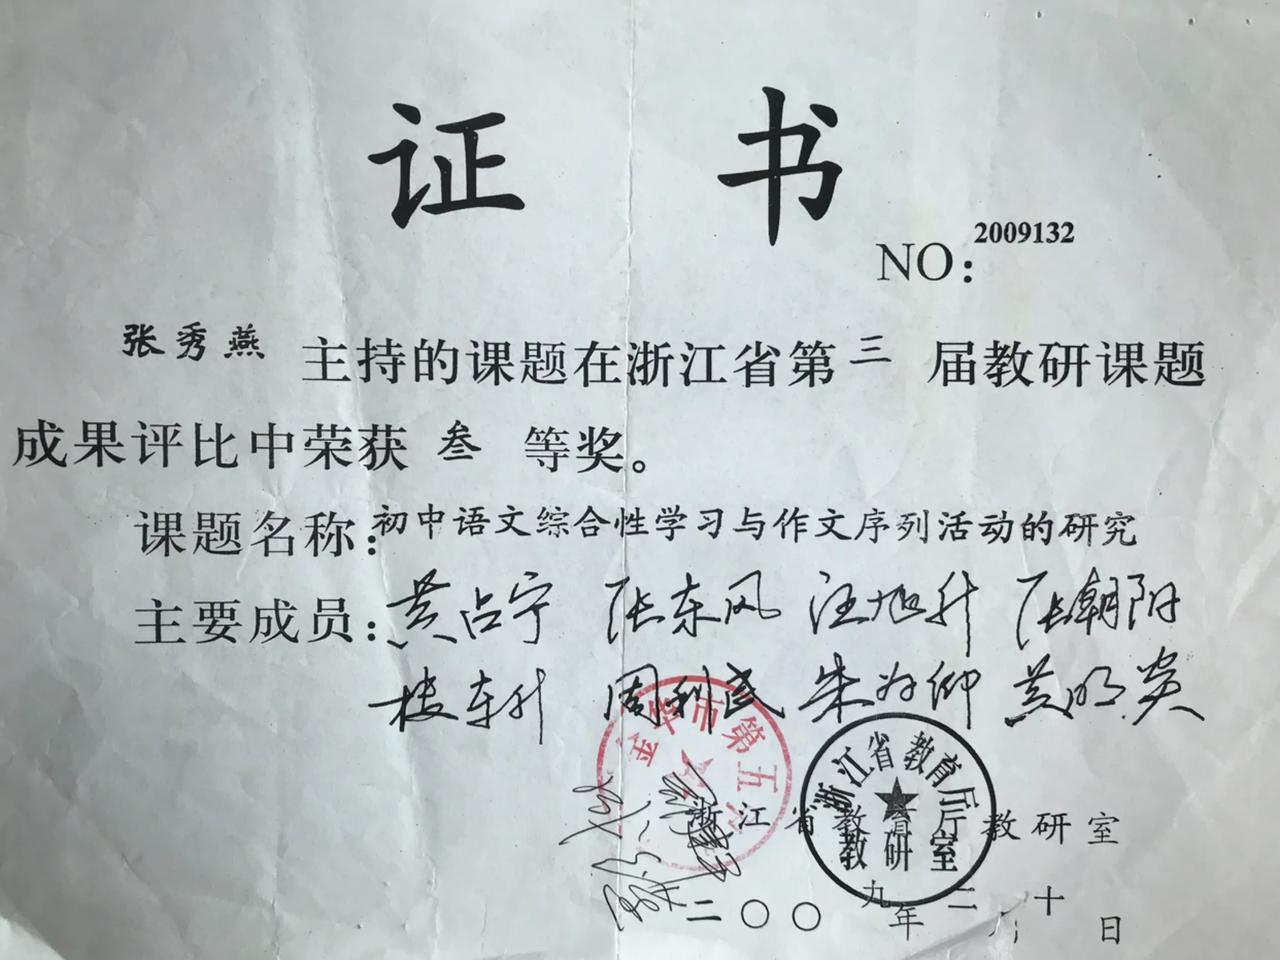 证 书
NO: 2009132
张秀燕 主持的课题在浙江省第 三 届教研课题
成果评比中荣获 叁 等奖。
课题名称: 初中语文综合性学习与作文序列活动的研究
主要成员: 黄占宁 张东风 汪旭升 张朝阳
楼轶升 周利武 朱为仰 黄明炎
金华市第五
浙江省教育厅
教研室
浙江省教育厅教研室
二〇〇九年二月十日